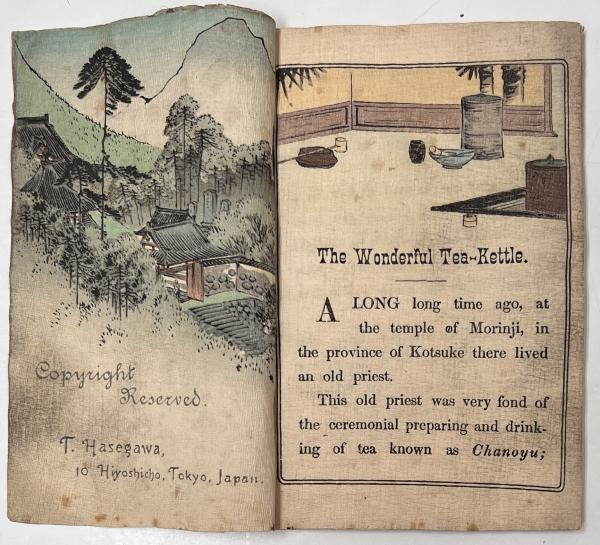 Copyright
Reserved.
T. Hasegawa,
10 Hiyoshicho, Tokyo, Japan.
The Wonderful Tea-Kettle.
A LONG long time ago, at
the temple of Morinji, in
the province of Kotsuke there lived
an old priest.
This old priest was very fond of
the ceremonial preparing and drink-
ing of tea known as Chanoyu;